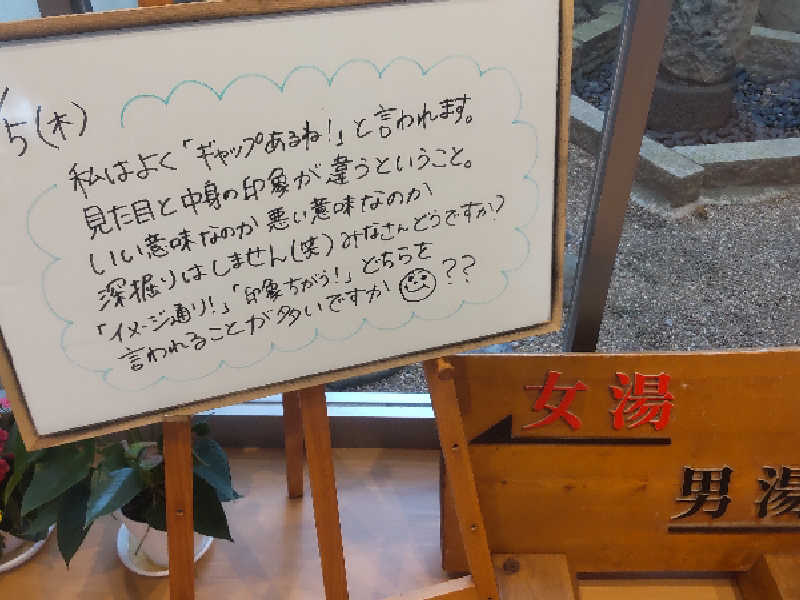 /5(木)
私はよく「ギャップあるね!」と言われます。
見た目と中身の印象が違うということ。
いい意味なのか悪い意味なのか
深掘りはしません(笑)みなさんどうですか?
「イメージ通り!」「印象ちがう!」どちらを
言われることが多いですか??
女湯
男湯